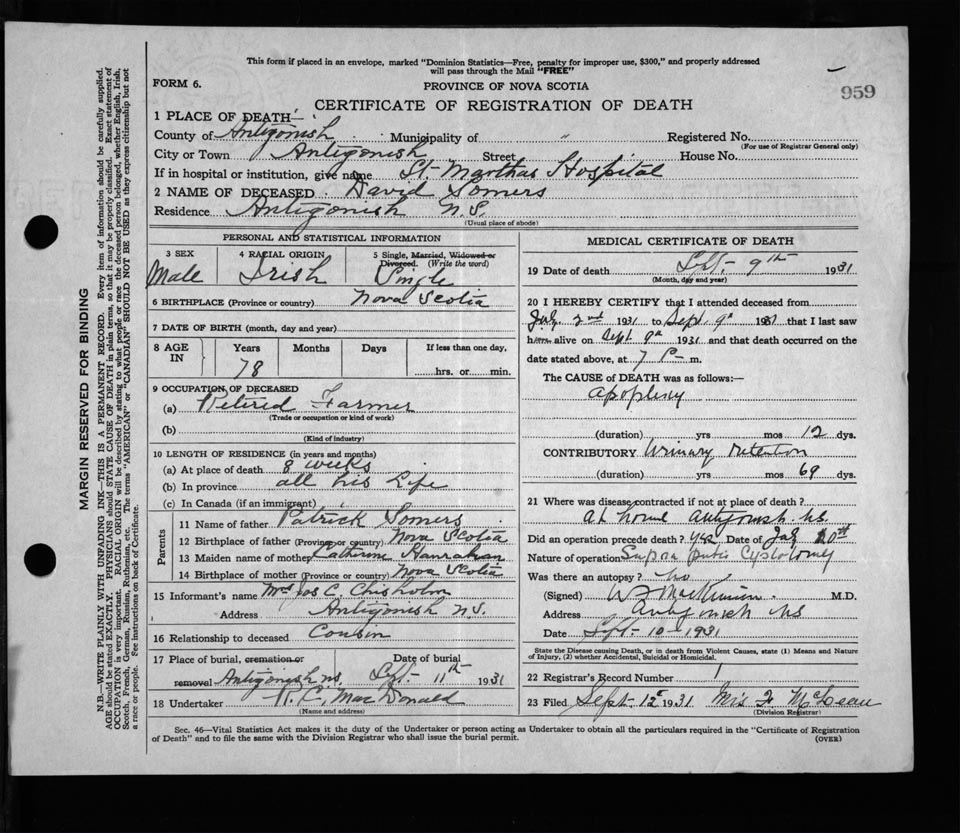 This form if placed in an envelope, marked "Dominion Statistics—Free, penalty for improper use, $300," and properly addressed
will pass through the Mail "FREE"
FORM 6.
PROVINCE OF NOVA SCOTIA
959
CERTIFICATE OF REGISTRATION OF DEATH
1 PLACE OF DEATH—
County of Antigonish Municipality of " Registered No.
(For use of Registrar General only)
City or Town Antigonish Street House No.
If in hospital or institution, give name St. Marthas Hospital
2 NAME OF DECEASED David Somers
Residence Antigonish N.S.
(Usual place of abode)
PERSONAL AND STATISTICAL INFORMATION
3 SEX Male
4 RACIAL ORIGIN Irish
5 Single, Married, Widowed or Divorced. (Write the word) Single
6 BIRTHPLACE (Province or country) Nova Scotia
7 DATE OF BIRTH (month, day and year)
8 AGE IN Years Months Days If less than one day,
78 hrs. or min.
9 OCCUPATION OF DECEASED
(a) Retired Farmer
(Trade or occupation or kind of work)
(b)
(Kind of industry)
10 LENGTH OF RESIDENCE (in years and months)
(a) At place of death 8 weeks
(b) In province all his life
(c) In Canada (if an immigrant)
Parents
11 Name of father Patrick Somers
12 Birthplace of father (Province or country) Nova Scotia
13 Maiden name of mother Catherine Hanrahan
14 Birthplace of mother (Province or country) Nova Scotia
15 Informant's name Mrs Jos C. Chisholm
Address Antigonish N.S.
16 Relationship to deceased Cousin
17 Place of burial, cremation or removal Antigonish ns. Date of burial Sept. 11th 1931
18 Undertaker R. C. MacDonald
(Name and address)
MEDICAL CERTIFICATE OF DEATH
19 Date of death Sept. 9th 1931
(Month, day and year)
20 I HEREBY CERTIFY that I attended deceased from
2nd 1931 to Sept. 9th 1931 that I last saw
him alive on Sept 9th 1931 and that death occurred on the
date stated above, at 7 P m.
The CAUSE of DEATH was as follows:—
Apoplexy
(duration) yrs mos 12 dys.
CONTRIBUTORY Urinary retention
(duration) yrs mos 69 dys.
21 Where was disease contracted if not at place of death?
at home Antigonish NS.
Did an operation precede death? yes Date of
Nature of operation Supra pubic Cystotomy
Was there an autopsy? no
(Signed) M.D.
Address Antigonish NS
Date Sept-10-1931
State the Disease causing Death, or in death from Violent Causes, state (1) Means and Nature
of Injury, (2) whether Accidental, Suicidal or Homicidal.
22 Registrar's Record Number 1
23 Filed Sept. 12 1931 F. McLean
(Division Registrar)
Sec. 46—Vital Statistics Act makes it the duty of the Undertaker or person acting as Undertaker to obtain all the particulars required in the "Certificate of Registration
of Death" and to file the same with the Division Registrar who shall issue the burial permit.
(OVER)
MARGIN RESERVED FOR BINDING
N.B.—WRITE PLAINLY WITH UNFADING INK—THIS IS A PERMANENT RECORD. Every item of information should be carefully supplied.
AGE should be stated EXACTLY. PHYSICIANS should STATE CAUSE OF DEATH in plain terms, so that it may be properly classified. Exact statement of
OCCUPATION is very important. RACIAL ORIGIN will be described by stating to what people or race the deceased person belonged, whether English, Irish,
Scotch, French, German, Russian, Ruthenian, etc. The terms "AMERICAN" or "CANADIAN" SHOULD NOT BE USED as they express citizenship but not
a race or people. See instructions on back of Certificate.